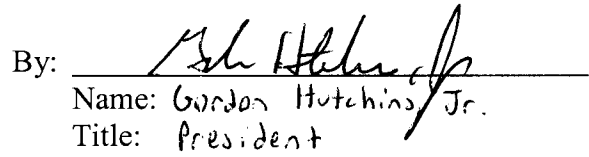 By:
Name: Gordon Hutchins, Jr.
Title: President